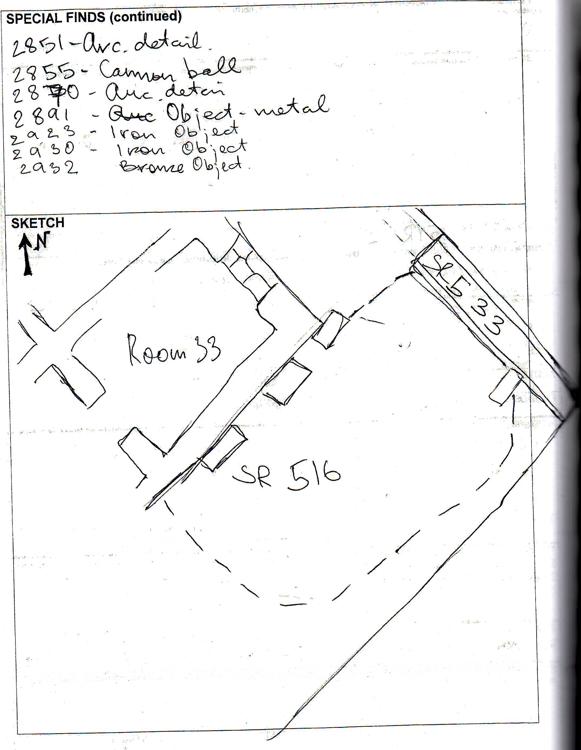 SPECIAL FINDS (continued)
2851-Arc. detail.
2855 - Cannon ball
2870 - Arc. detail
2891 - Object - metal
2923 - Iron Object
2930 - Iron Object
2932 Bronze Object.
SKETCH
N
SR 533
Room 33
SR 516